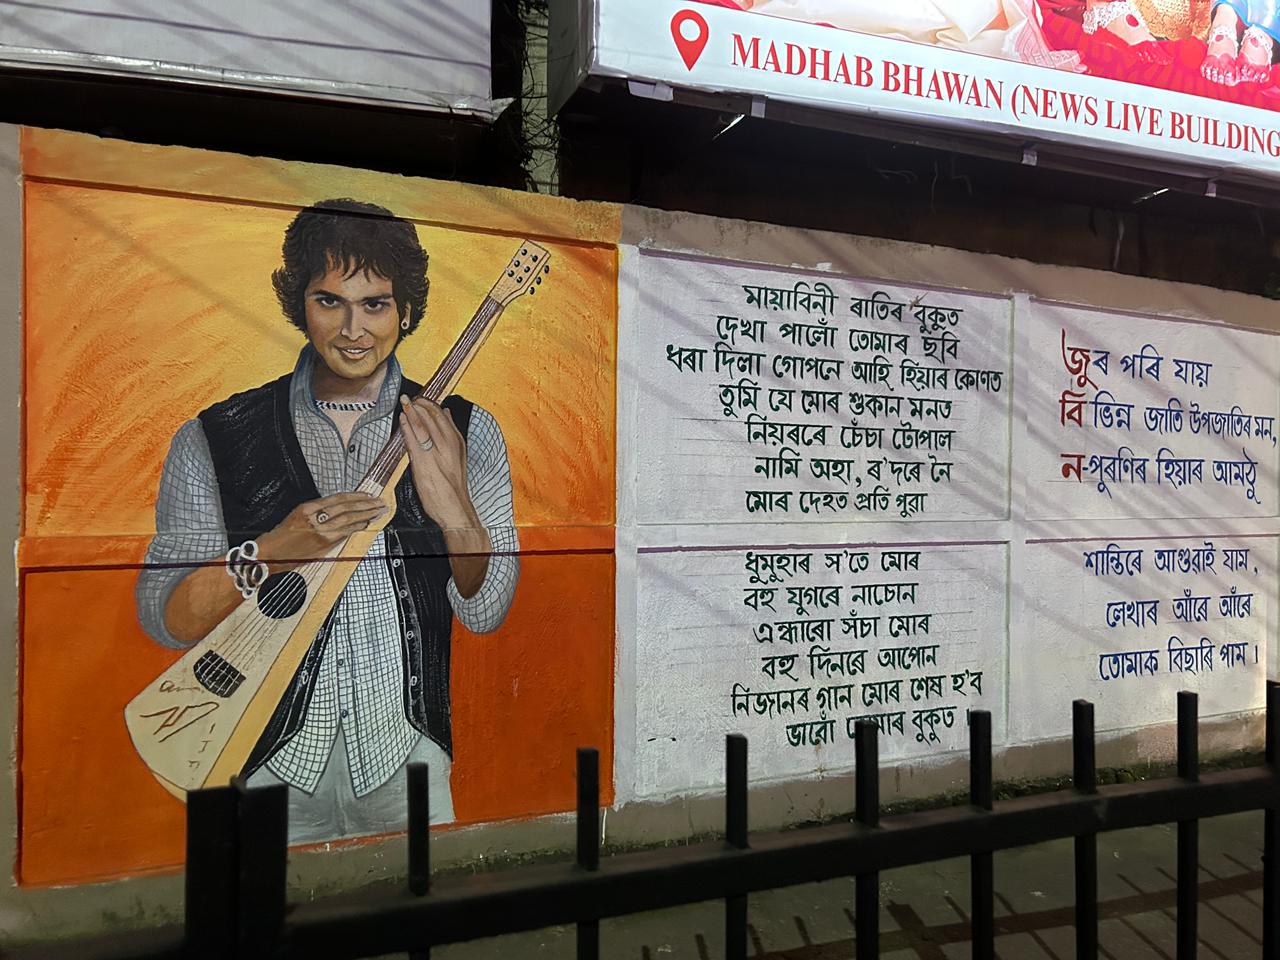 MADHAB BHAWAN (NEWS LIVE BUILDING
মায়াবিনী ৰাতিৰ বুকুত
দেখা পালোঁ তোমাৰ ছবি
ধৰা দিলা গোপনে আহি হিয়াৰ কোণত
তুমি যে মোৰ শুকান মনত
নিয়ৰৰে চেঁচা টোপাল
নামি অহা, ৰ'দৰে নৈ
মোৰ দেহত প্ৰতি পুৱা
ধুমুহাৰ স'তে মোৰ
বহু যুগৰে নাচোন
এন্ধাৰো সঁচা মোৰ
বহু দিনৰে আপোন
নিজানৰ গান মোৰ শেষ হ'ব
ভাবোঁ বুকুত।
জুৰ পৰি যায়
বিভিন্ন জাতি উপজাতিৰ মন,
ন-পুৰণিৰ হিয়াৰ আমঠু
শান্তিৰে আগুৱাই যাম,
লেখাৰ আঁৰে আঁৰে
তোমাক বিছাৰি পাম।